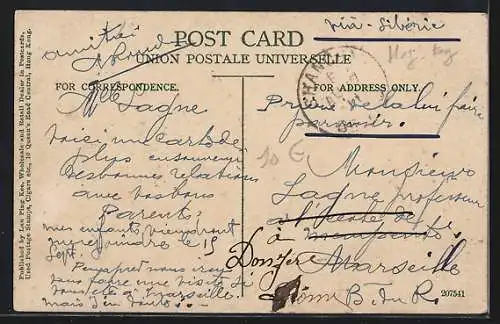 via - Sibérie
amitiés
POST CARD
UNION POSTALE UNIVERSELLE
FOR CORRESPONDENCE.
FOR ADDRESS ONLY.
SHANGHAI
Hog-Kog
Published by Lau Ping Kee, Wholesale and Retail Dealer in Postcards,
Used Postage Stamps, Cigars etc., 10 Queen's Road Central, Hong Kong.
Melle Lagne
Prière de la lui faire
parvenir.
10 €
voici une carte de
plus en souvenir
des bonnes relations
avec vos bons
Parents.
mes enfants viendront
me rejoindre le 15
Sept.
sans faire une visite
à Marseille
mais j'en doute...
Monsieur
Lagne professeur
à l'école de
à
Marseille
B. du R.
207541